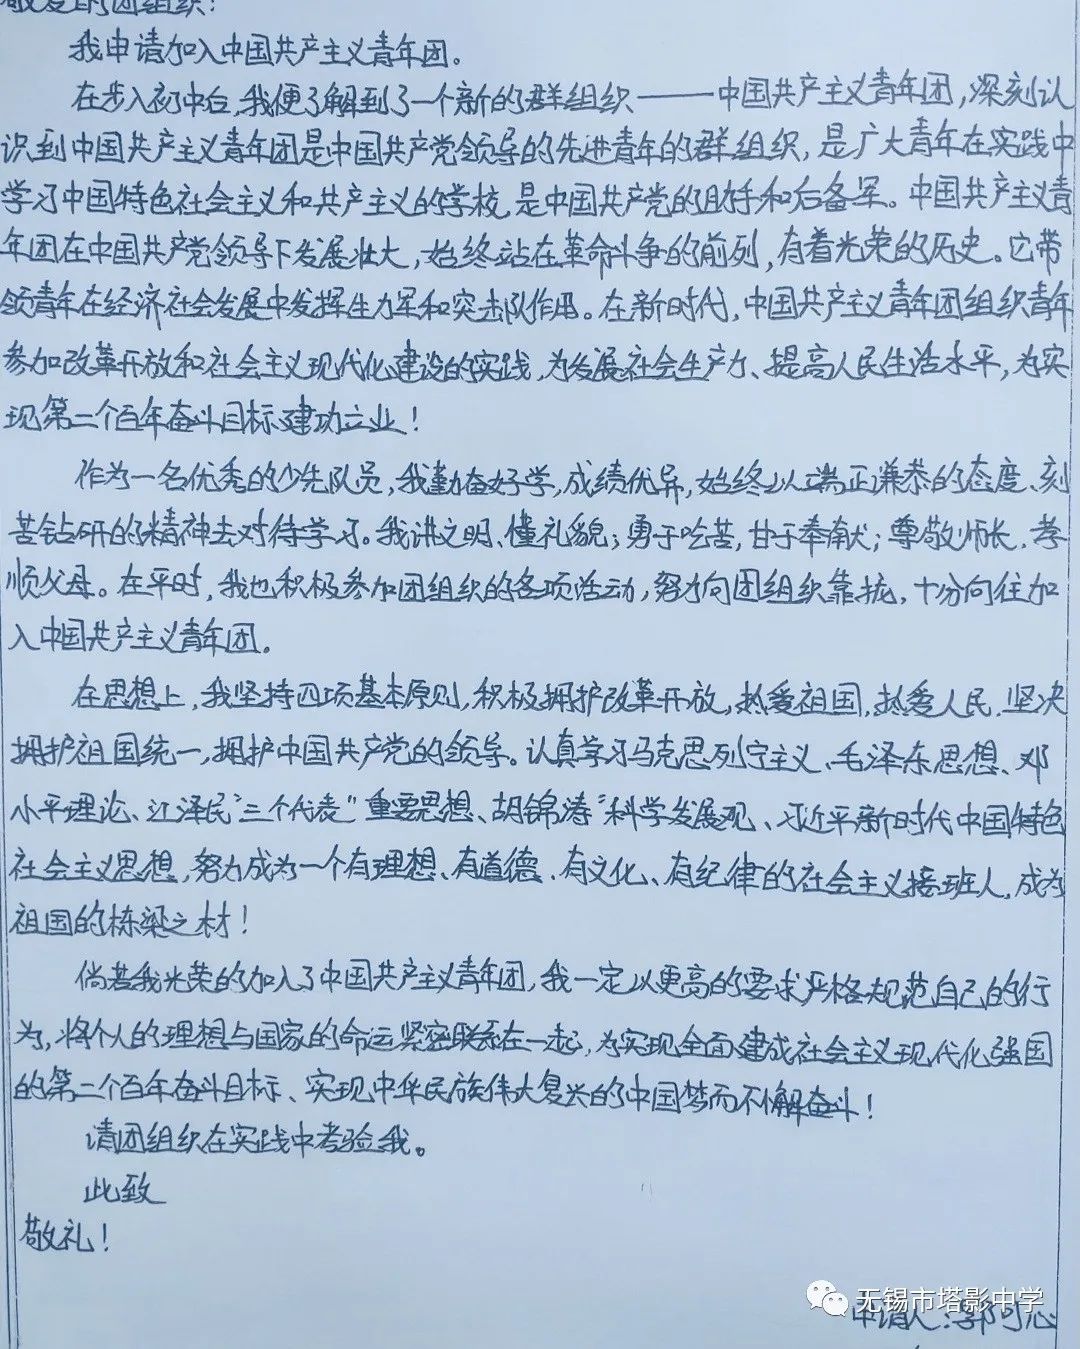 敬爱的团组织：
我申请加入中国共产主义青年团。
在步入初中台，我便了解到了一个新的群组织——中国共产主义青年团，深刻认
识到中国共产主义青年团是中国共产党领导的先进青年的群组织，是广大青年在实践中
学习中国特色社会主义和共产主义的学校，是中国共产党的助手和后备军。中国共产主义青
年团在中国共产党领导下发展壮大，始终站在革命斗争的前列，有着光荣的历史。它带
领青年在经济社会发展中发挥生力军和突击队作用。在新时代，中国共产主义青年团组织青年
参加改革开放和社会主义现代化建设的实践，为发展社会生产力、提高人民生活水平，为实
现第二个百年奋斗目标建功立业！
作为一名优秀的少先队员，我勤奋好学，成绩优异，始终以端正谦恭的态度、刻
苦钻研的精神去对待学习。我讲文明、懂礼貌；勇于吃苦，甘于奉献；尊敬师长，孝
顺父母。在平时，我也积极参加团组织的各项活动，努力向团组织靠拢，十分向往加
入中国共产主义青年团。
在思想上，我坚持四项基本原则，积极拥护改革开放，热爱祖国，热爱人民，坚决
拥护祖国统一，拥护中国共产党的领导。认真学习马克思列宁主义、毛泽东思想、邓
小平理论、江泽民“三个代表”重要思想、胡锦涛“科学发展观、习近平新时代中国特色
社会主义思想，努力成为一个有理想、有道德、有文化、有纪律的社会主义接班人，成为
祖国的栋梁之材！
倘若我光荣的加入了中国共产主义青年团，我一定以更高的要求严格规范自己的行
为，将个人的理想与国家的命运紧密联系在一起，为实现全面建成社会主义现代化强国
的第二个百年奋斗目标、实现中华民族伟大复兴的中国梦而不懈奋斗！
请团组织在实践中考验我。
此致
敬礼！
无锡市塔影中学
申请人：郭可心